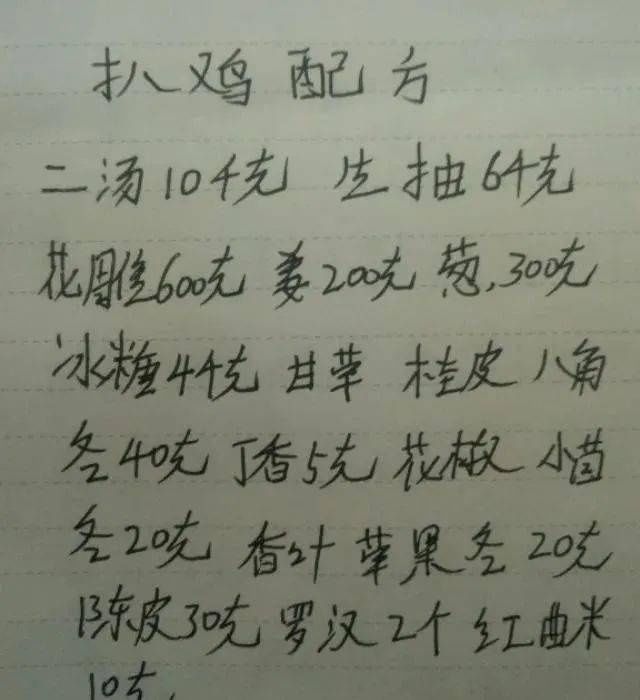 扒鸡配方
二汤10千克 生抽6千克
花雕600克 姜200克 葱.300克
冰糖4千克 甘草 桂皮 八角
各40克 丁香5克 花椒 小茴
各20克 香叶 草果各20克
陈皮30克 罗汉2个 红曲米
10克.